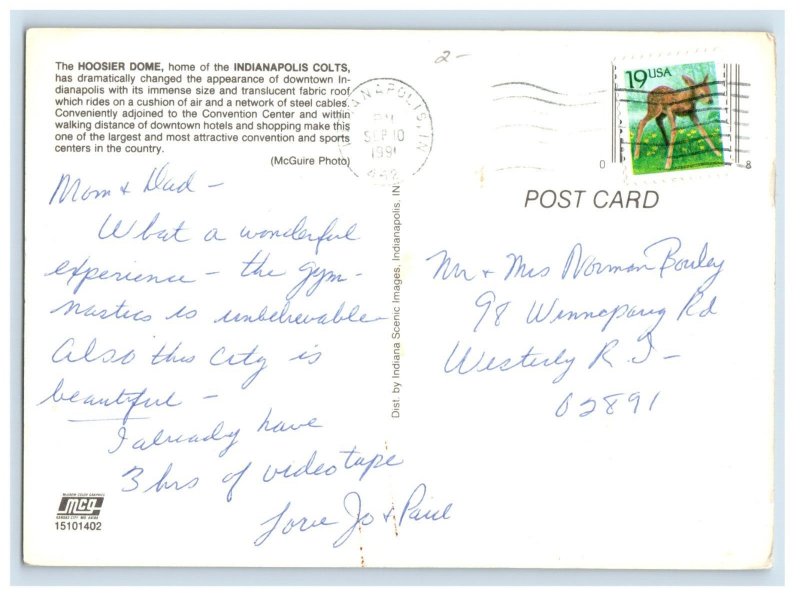 The HOOSIER DOME, home of the INDIANAPOLIS COLTS,
has dramatically changed the appearance of downtown In-
dianapolis with its immense size and translucent fabric roof
which rides on a cushion of air and a network of steel cables.
Conveniently adjoined to the Convention Center and within
walking distance of downtown hotels and shopping make this
one of the largest and most attractive convention and sports
centers in the country.
(McGuire Photo)
2-
INDIANAPOLIS, IN
PM
SEP 10
1991
19 USA
0 8
POST CARD
Mom & Dad -
What a wonderful
experience - the gym-
nastics is unbelievable
Also this city is
beautiful -
I already have
3 hrs of videotape
Love Jo & Paul
Dist. by Indiana Scenic Images, Indianapolis, IN.
Mr & Mrs Norman Bouley
98 Winnapaug Rd
Westerly R I -
02891
mcg
15101402